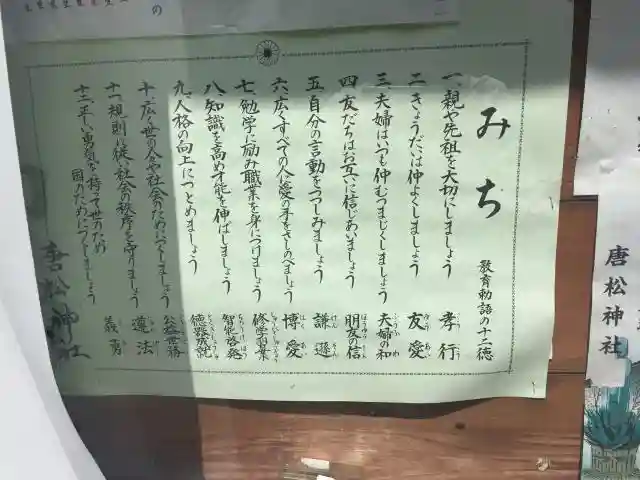 みち
教育勅語の十二徳
一、親や先祖を大切にしましょう 孝行
二、きょうだいは仲よくしましょう 友愛
三、夫婦はいつも仲むつまじくしましょう 夫婦の和
四、友だちはお互いに信じあいましょう 朋友の信
五、自分の言動をつつしみましょう 謙遜
六、広くすべての人に愛の手をさしのべましょう 博愛
七、勉学に励み職業を身につけましょう 修学習業
八、知識を高め才能を伸ばしましょう 智能啓発
九、人格の向上につとめましょう 徳器成就
十、広く世の人々や社会のためにつくしましょう 公益世務
十一、規則に従い社会の秩序を守りましょう 遵法
十二、正しい勇気を持って世のため
国のためにつくしましょう 義勇
唐松神社
唐松神社